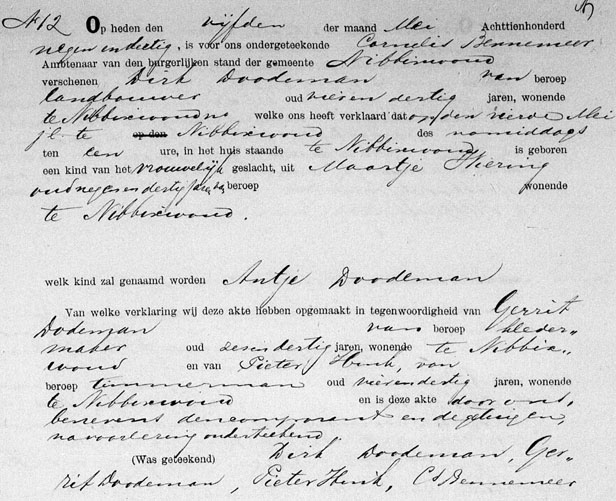 N 12 Op heden den vijfden der maand Mei Achttienhonderd
negen en dertig, is voor ons ondergeteekende Cornelis Bennemeer
Ambtenaar van den burgerlijken stand der gemeente Nibbixwoud
verschenen Dirk Doodeman van beroep
landbouwer oud vier en dertig jaren, wonende
te Nibbixwoud welke ons heeft verklaard dat op den vierde Mei
jl. te op den Nibbixwoud des namiddags
ten een ure, in het huis staande te Nibbixwoud is geboren
een kind van het vrouwelijk geslacht, uit Maartje
oud negen en dertig jaren, beroep wonende
te Nibbixwoud.
welk kind zal genaamd worden Antje Doodeman
Van welke verklaring wij deze akte hebben opgemaakt in tegenwoordigheid van Gerrit
Dodeman van beroep kleder„
maker oud zes en dertig jaren, wonende te Nibbix„
woud en van Pieter Henk, van
beroep timmerman oud vier en dertig jaren, wonende
te Nibbixwoud en is deze akte door ons,
benevens den comparant en de getuigen,
na voorlezing onderteekend.
(Was geteekend) Dirk Doodeman, Ger„
rit Doodeman, Pieter Henk, Cs Bennemeer